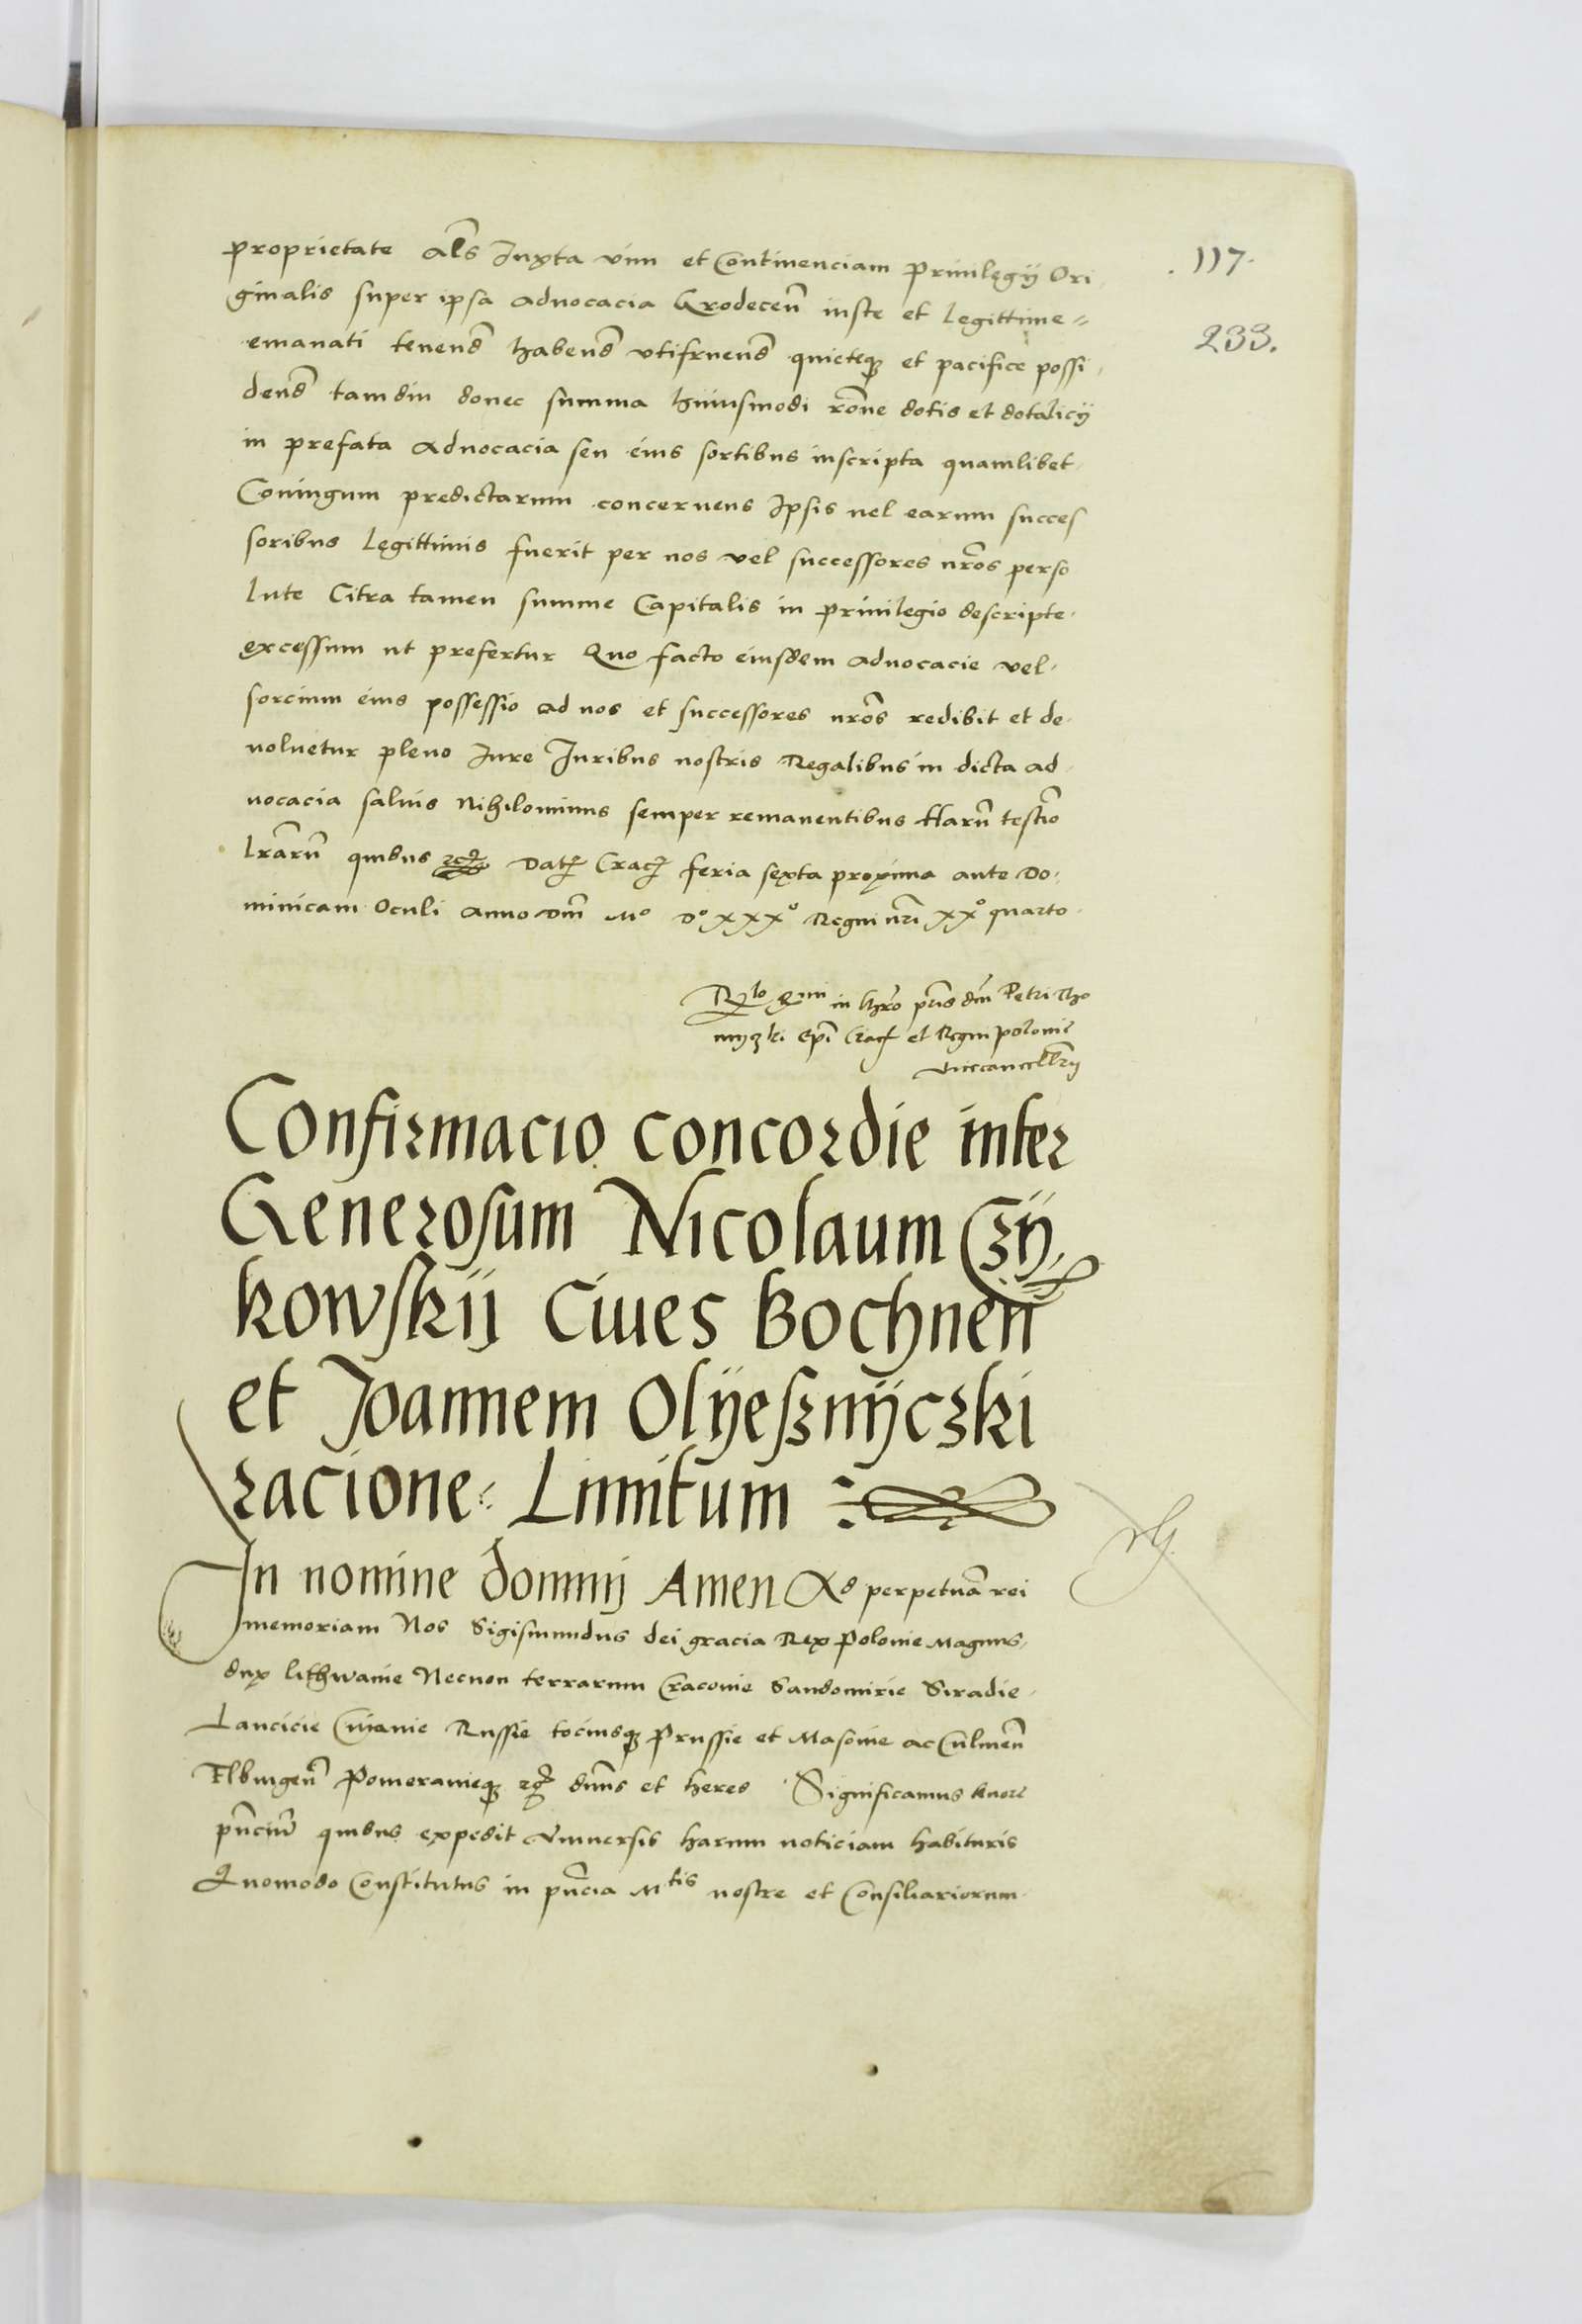 proprietate al͞s Juxta vim et Continenciam Priuilegij Ori
ginalis super ipsa aduocacia Grodecen̄ iuste et Legittime
emanati tenend̄ habend̄ vtifruend̄ quieteqꝫ et pacifice possi
dend̄ tamdiu donec summa huiusmodi rōne dotis et dotalicij
in prefata Aduocacia seu eius sortibus inscripta quamlibet
Coniugum predictarum concernens Ipsis uel earum succes
soribus Legittimis fuerit per nos vel successores nrōs perso
lute Citra tamen summe Capitalis in priuilegio descripte
excessum ut prefertur Quo facto eiusdem aduocacie vel
sorcium eius possessio ad nos et successores nrōs redibit et de
voluetur pleno Jure Juribus nostris Regalibus in dicta ad
uocacia saluis Nihilominus semper remanentibus Harū testīo
Lrārū quibus Datꝭ Cracꝭ feria sexta proxima ante Do
minicam Oculi anno Dnī Mº Dº xxxº Regni nrī xxº quarto
in Chrō prīs dnī Petri Tho
myzki Epī Cracꝭ et Regni Polonie
vicecancellrīj
117.
233.
Confirmacio concordie inter
Generosum Nicolaum Czÿ
kowskij Ciues Bochnen̄
et Joannem Olÿeſznÿczki
racione Limitum
In nomine dominj Amen Ad perpetuā rei
memoriam Nos Sigismundus dei gracia Rex Polonie Magnus
dux lithwanie Necnon terrarum Cracouie Sandomirie Siradie
Lancicie Cuiauie Russie tociusqꝫ Prussie et Masouie ac Culmen̄
Elbingen̄ Pomeranieqꝫ ꝛcꝭ dnūs et heres Significamus tenore
pn̄ciū quibus expedit vniuersis harum noticiam habituris
Quomodo Constitutus in pn̄cia Mtis nostre et Consiliariorum